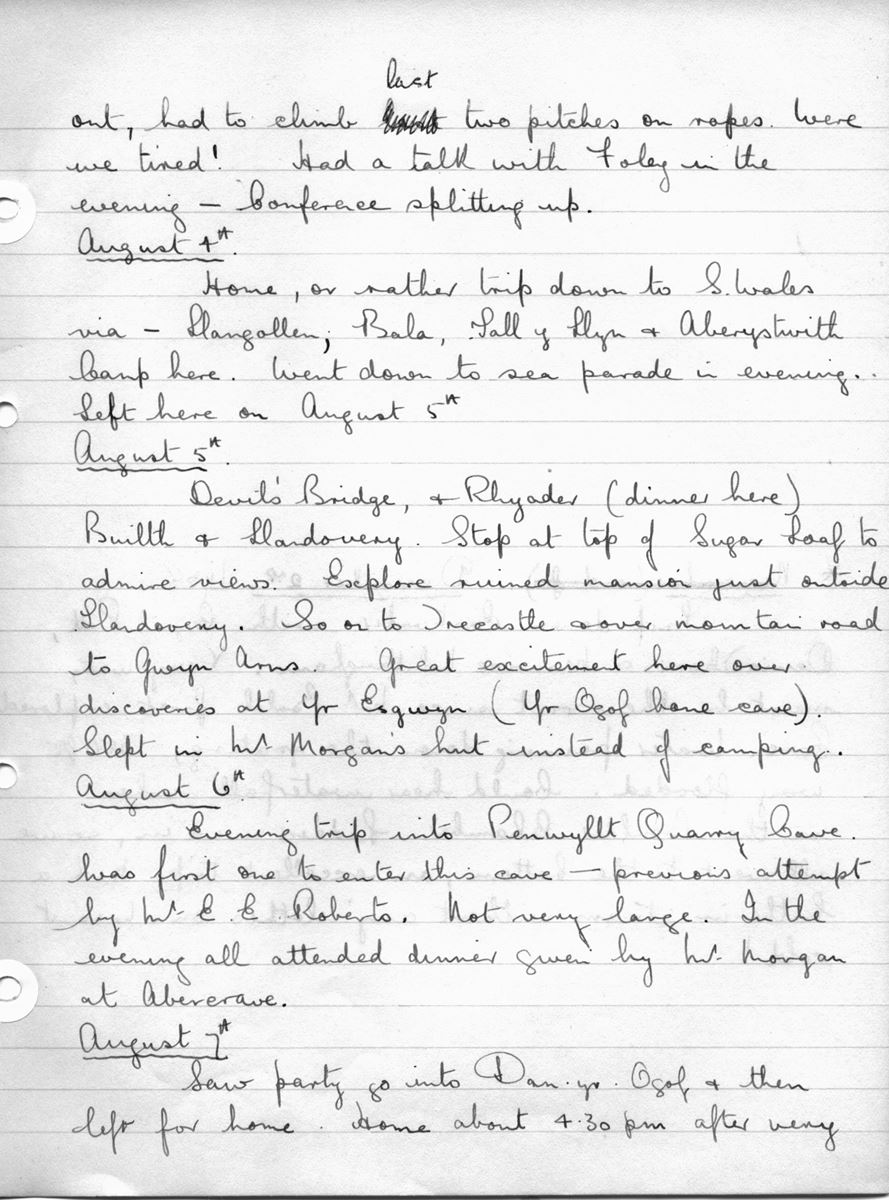 last
out, had to climb two pitches on ropes. Were
we tired! Had a talk with Foley in the
evening — Conference splitting up.
August 4th.
Home, or rather trip down to S. Wales
via — Llangollen, Bala, Tall y Llyn & Aberystwith
Camp here. Went down to sea parade in evening..
Left here on August 5th
August 5th.
Devil's Bridge, & Rhyader (dinner here)
Builth & Llandovery. Stop at top of Sugar Loaf to
admire views. Explore ruined mansion just outside
Llandovery. So on to Trecastle & over mountain road
to Gwyn Arms. Great excitement here over
discoveries at Yr Esgwyn (Yr Ogof bone cave).
Slept in Mr Morgan's hut instead of camping..
August 6th.
Evening trip into Penwyllt Quarry Cave.
Was first one to enter this cave — previous attempt
by Mr E. E. Roberts. Not very large. In the
evening all attended dinner given by Mr. Morgan
at Abercrave.
August 7th
Saw party go into Dan.yr.Ogof & then
left for home. Home about 4.30 pm after very